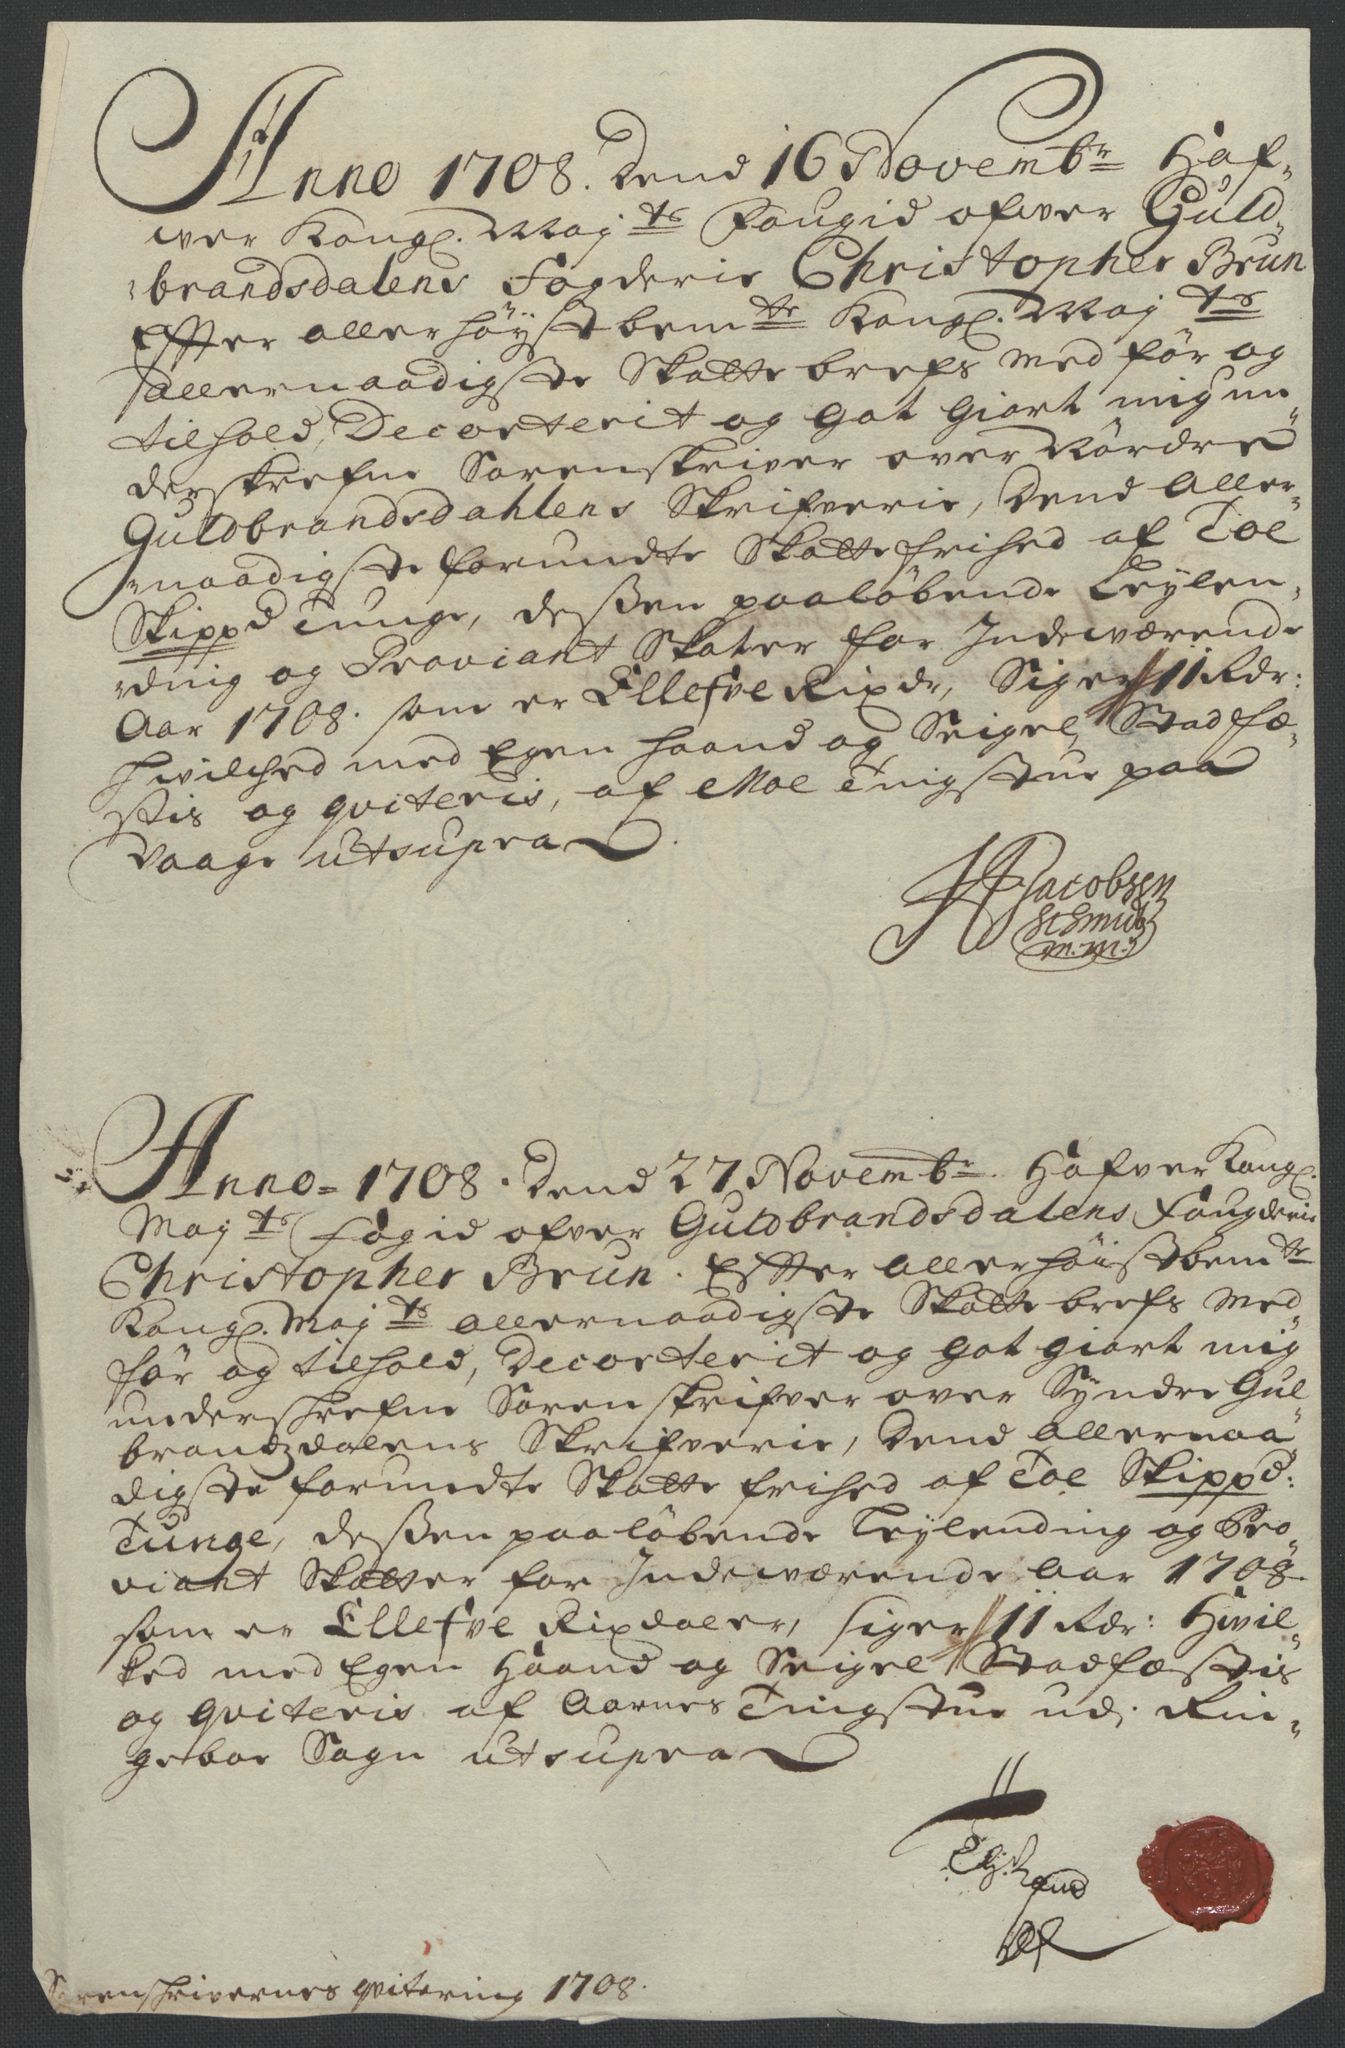 Anno 1708. Dend 16 Novembr Haf-
wer Kongl. Mayts Fougid ofwer Guld-
brandsdalens Fogderie Christopher Brun
Effter allerhöystbemte Kongl. Mayts
allernaadigste Skattebrefs Medför og
tilhold, Decorterit og got Giort mig un-
derskrefne Sorenskriver over Nordre
Guldbrandsdahlens Skrifverie, Dend Aller-
naadigste forundte Skattefrihed af Toe
Skippd Tunge, desßen paaløbende Leylen-
ding og Proviant Skater for Indewærende
Aar 1708. som er Ellefve Rixdr, Siger 11 Rdr:
hwilched med Egen haand og Seigel Stadfæ-
stis og qviteris, af Moe Tingstue paa
Vaage utsupra
Jacobsen
Schmidt
m.m.
Anno 1708. Dend 27 Novembr. Hafver Kongl.
Mayts Fogid ofver Guldbrandsdalens Fougderie
Christopher Brun. Effter allerhöistbemte
Kongl. Mayts allernaadigste Skattebrefs Med-
för og tilhold, Decorterit og got giort mig
underschrefne Sorenskrifver over Syndre Gul-
brandzdalens Skrifverie, Dend Allernaa-
digste forundte Skatte frihed af Toe Skippd:
Tunge, desßen paaløbende Leylending og Pro-
viant Skatter for Indewærende Aar 1708
som er Ellefve Rixdaler, siger 11 Rdr: Hwil-
ked med Egen Haand og Seigel Stadfæstis
og qviteris af Aarnes Tingstue udj Rin-
geboe Sogn utsupra
Sorenschrivernes qvitering 1708.